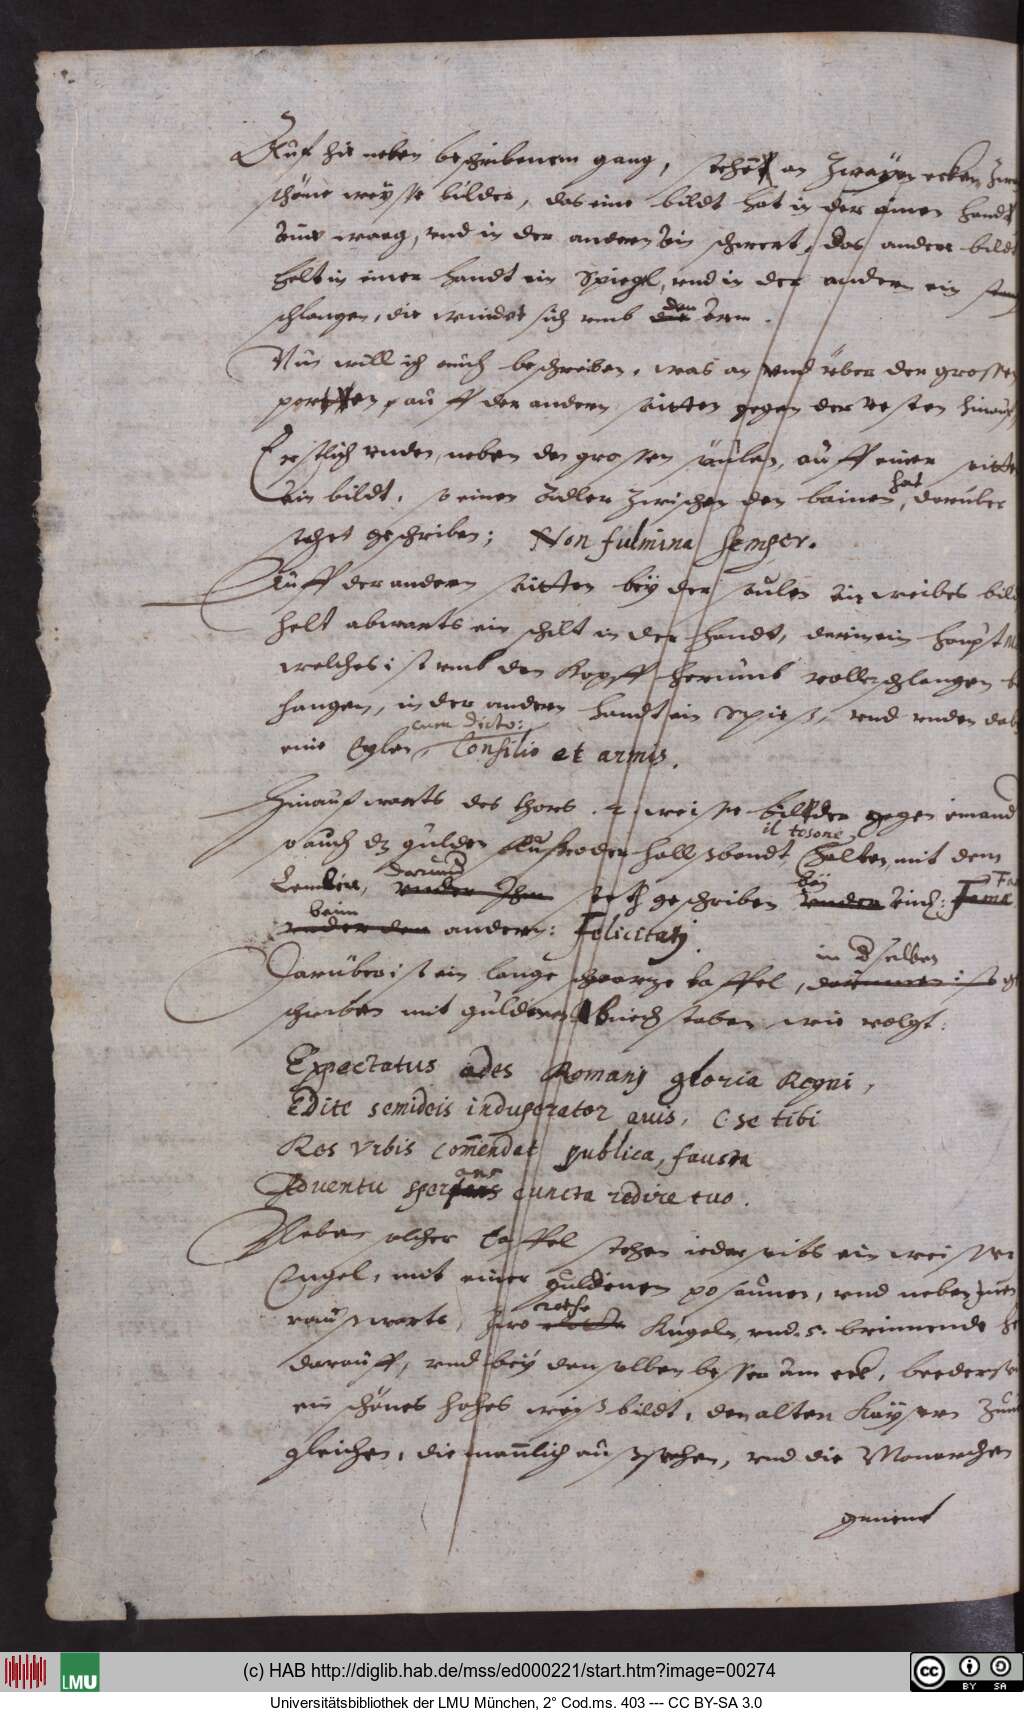 Auf hie neben beschribenem gang, stehet an Zwayen ecken zwe
schöne weysse bilder, das eine bildt hat in der ainen handt
eine waag, vnd in der anderen ein schwert, das ander bildt
helt in einer handt ein Spiegl, vnd in der andern ein
schlangen, die windet sich vmb die den arm.
Nun will ich auch beschreiben, was an vnd über der grossen
porten, auff der andern seitten gegen der vesten hinauf
Erstlich vnden, neben den grossen säulen, auff einer seitten
ein bildt, so einen Adler zwischen den bainen hat, darüber
stehet geschriben; Non fulmina semper.
Auff der andern seitten bey der saulen ein weibes bild
helt abwarts ein schilt in der handt, darin ein haupt
welches ist vmb den Kopff herumb voller schlangen
hangen, in der anderen handt ein spiess, vnd vnden
eine Eylen, cum dicto: Consilio et armis.
Hinaufwarts des thors 2. weisse bilder gegen einand
so auch dz gulden fluss oder hallssbandt il tosone, halten, mit dem
Lemblen, darunder stehet geschriben bey vnder einem: Fama
vnder dem beim andern: Felicitati
Darüber ist ein lange schwarze taffel, in dselben darinnen ist
schriben mit guldenen buechstaben wie volgt:
Expectatus ades Romanj gloria Regni,
Edite semideis induperator auis, C se tibi
Res Vrbis comendat publica, fausta
Aduentu sperans cuncta redire tuo.
Neben solcher taffel stehen ieder seits ein weisser
Engel, mit einer guldenen posaunen, vnd neben
rausswarts, zwo rothe Kugeln, vnd 5. brinnende
darauff, vnd bey denselben besser am eck, beederseits
ein schönes hohes weiss bildt, den alten Kaysern Zuuer
gleichen, die mannlich aussehen, vnd die Monarchen
genent
(c) HAB http://diglib.hab.de/mss/ed000221/start.htm?image=00274
LMU
BY SA
Universitätsbibliothek der LMU München, 2° Cod.ms. 403 --- CC BY-SA 3.0